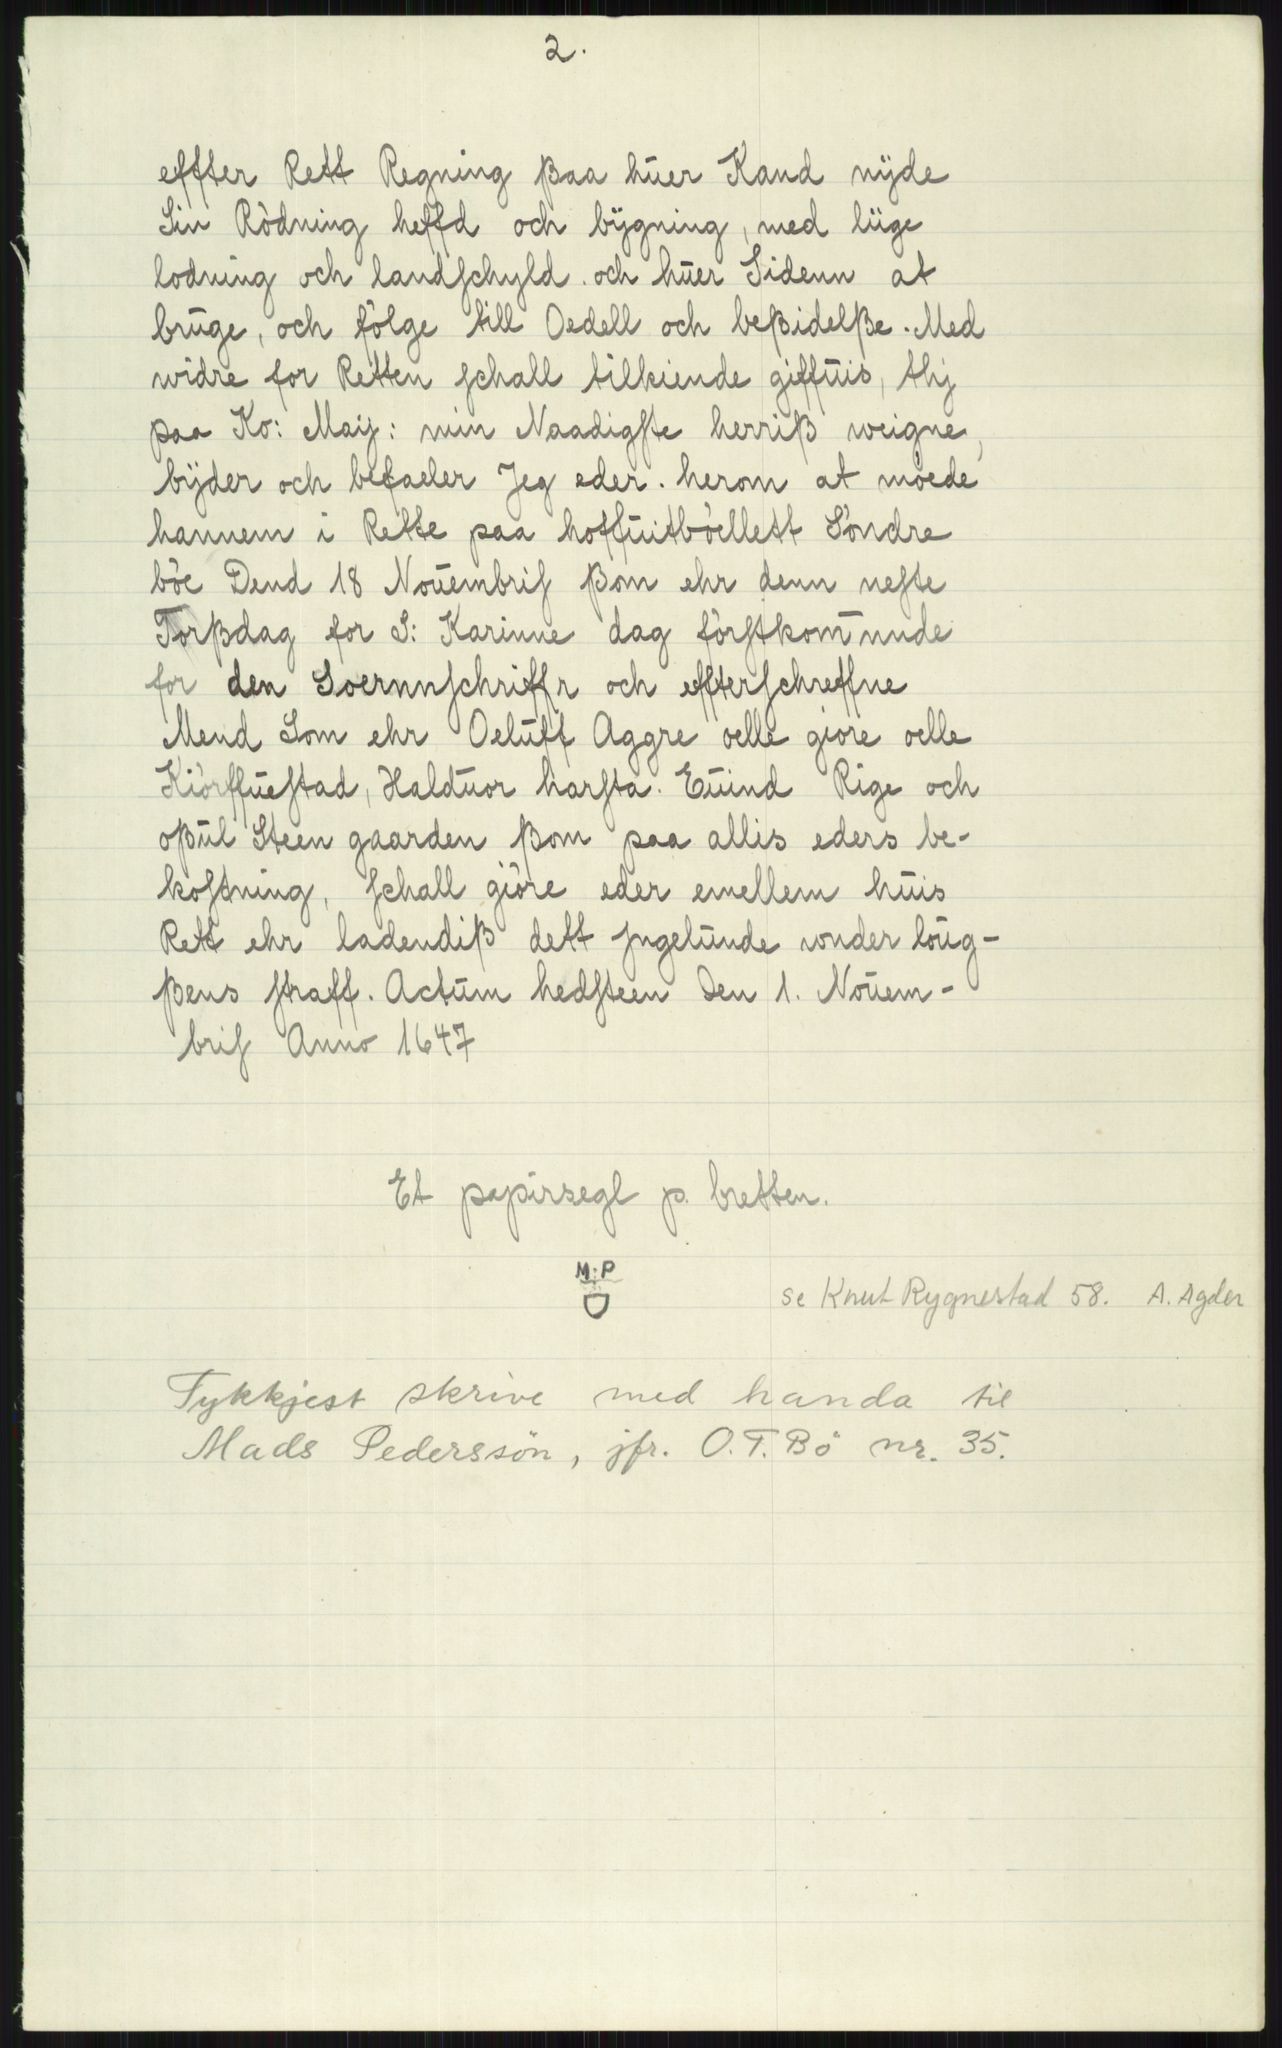 2.
effter Rett Regning ßaa huer Kand nÿde
Sin Rödning heffd och bÿgning, med liige
lodning och landschyld. och huer Sidenn at
bruge, och følge till Oedell och beßidelße. Med
widre for Retten schall tilkiende giffuis, thj
paa Ko: Maij: min Naadigste herriß weigne,
bÿder och befaeler Jeg eder. herom at möede
hannem i Rette paa hoffuitböellett Söndre
böe Dend 18 Nouembris ßom ehr denn neste
Torßdag for S: Karinne dag förstkom̄nnde
for den Soernnschriffr och effterschreffne
Mend Som ehr Oeluff Aggre oelle giore oelle
Kiörffuestad, Halduor harsta. Euind Rige och
oßul Steen gaarden ßom paa allis eders be-
kostning, schall giöre eder emellem huis
Rett ehr ladendiß dett Jngelunde wnder loug-
ßens straff. Actum hedsteen Den 1. Nouem-
bris Anno 1647
Et papirsegl p. bretten.
M.P
se Knut Rygnestad 58. A. Agder
Tykkjest skrive med handa til
Mads Pederssön, jfr. O.T. Bö nr. 35.